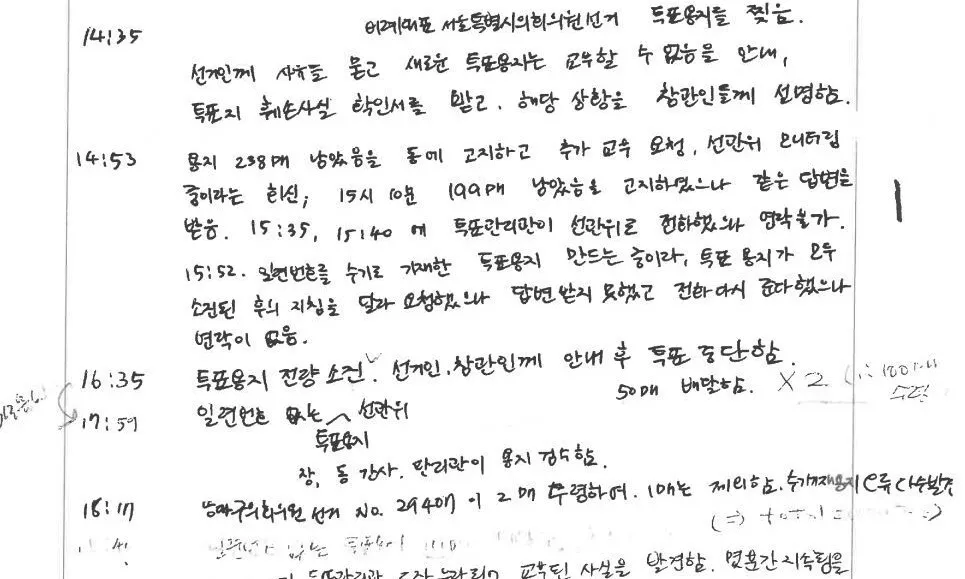 14:35 비례대표 서울특별시의회의원선거 투표용지를 찢음.
선거인께 사유를 묻고 새로운 투표용지는 교부할 수 없음을 안내,
투표지 훼손사실 확인서를 받고, 해당 상황을 참관인들께 설명함.
14:53 용지 238매 남았음을 동에 고지하고 추가 교부 요청, 선관위 모니터링
중이라는 회신, 15시 10분 199매 남았음을 고지하였으나 같은 답변을
받음. 15:35, 15:40 에 투표관리관이 선관위로 전화했으나 연락불가.
15:52. 일련번호를 수기로 기재한 투표용지 만드는 중이라, 투표 용지가 모두
소진된 후의 지침을 달라 요청했으나 답변 받지 못했고 전화 다시 준다했으나
연락이 없음.
16:35 투표용지 전량 소진. 선거인·참관인께 안내 후 투표 중단함.
17:59 일련번호 없는 선관위 50매 배달함. X 2 100매
투표용지 수령
장, 동 간사. 관리관이 용지 검수함.
18:17 구의회의원 선거 No. 2940매 이 2매 수령하여. 1매는 제외함.
(=) total
일련번호 없는 투표용지
교부된 사실을 발견함. 몇분간 지속됨을